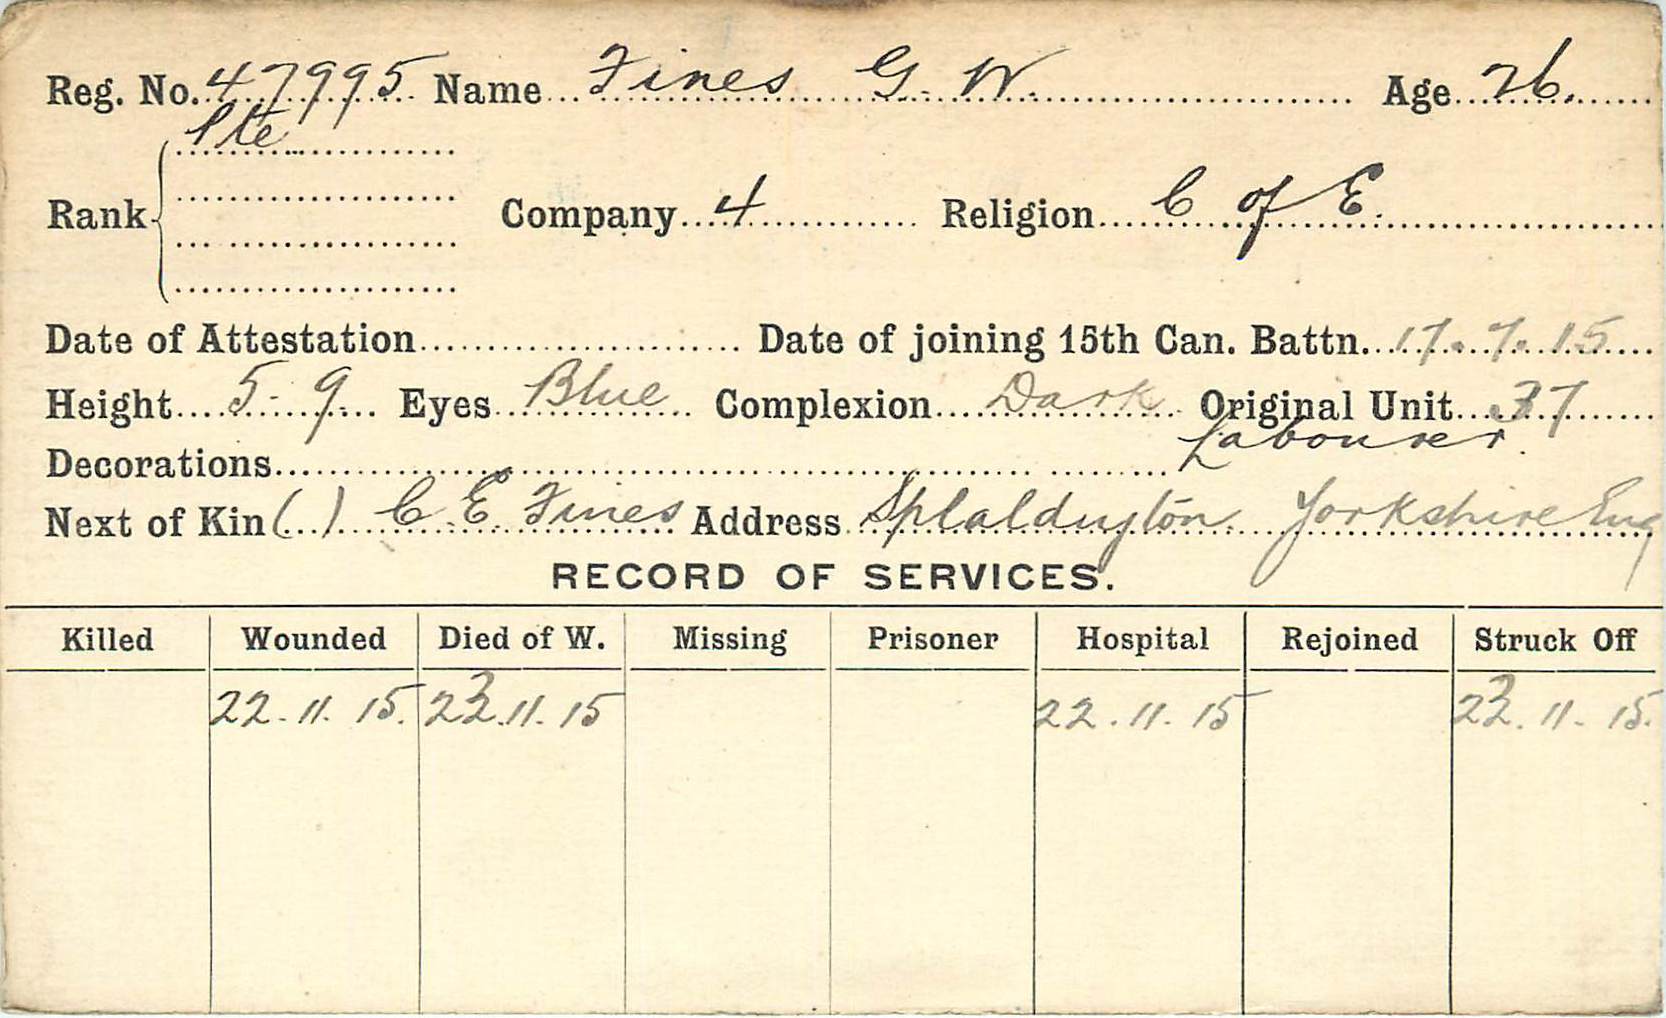 Reg. No. 47995 Name Fines G. W. Age 26.
Pte
Rank Company 4 Religion C of E.
Date of Attestation Date of joining 15th Can. Battn. 17.7.15
Height 5-9 Eyes Blue Complexion Dark Original Unit 37
Labourer.
Decorations
Next of Kin ( ) C. E. Fines Address Splaldington Yorkshire Eng
RECORD OF SERVICES.
Killed Wounded Died of W. Missing Prisoner Hospital Rejoined Struck Off
22-11.15. 23.11.15 22.11.15 23.11-15.